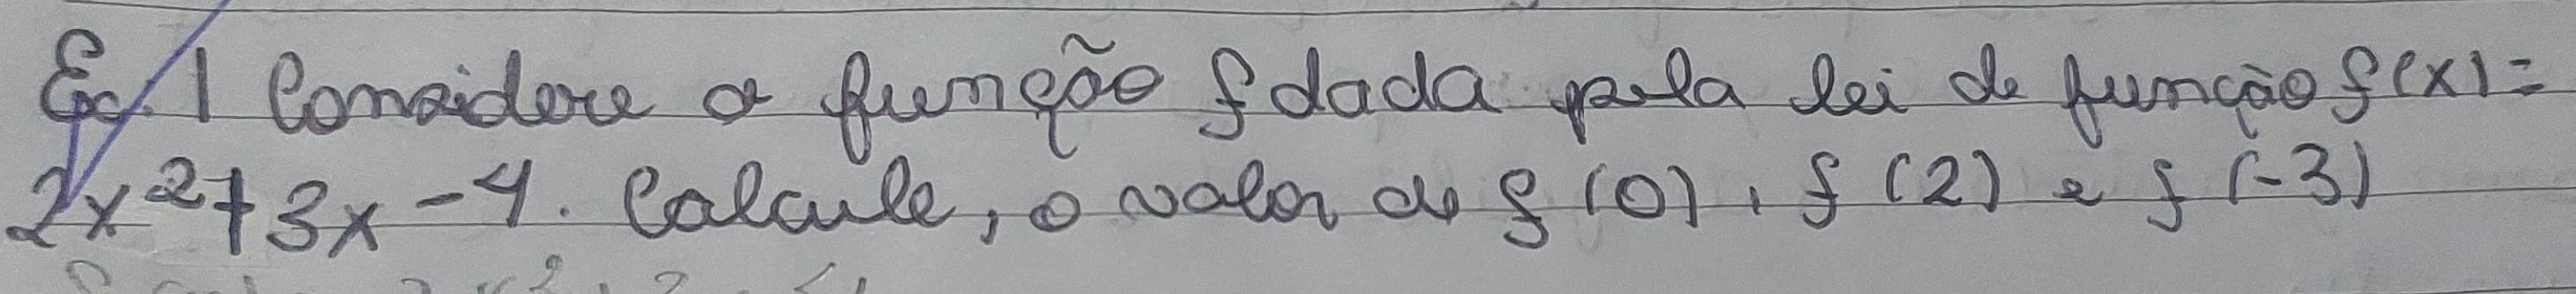 Ex. 1 Considere a função f dada pela lei de função f(x)=
2x²+3x-4. Calcule, o valor de f (0), f (2) e f (-3)